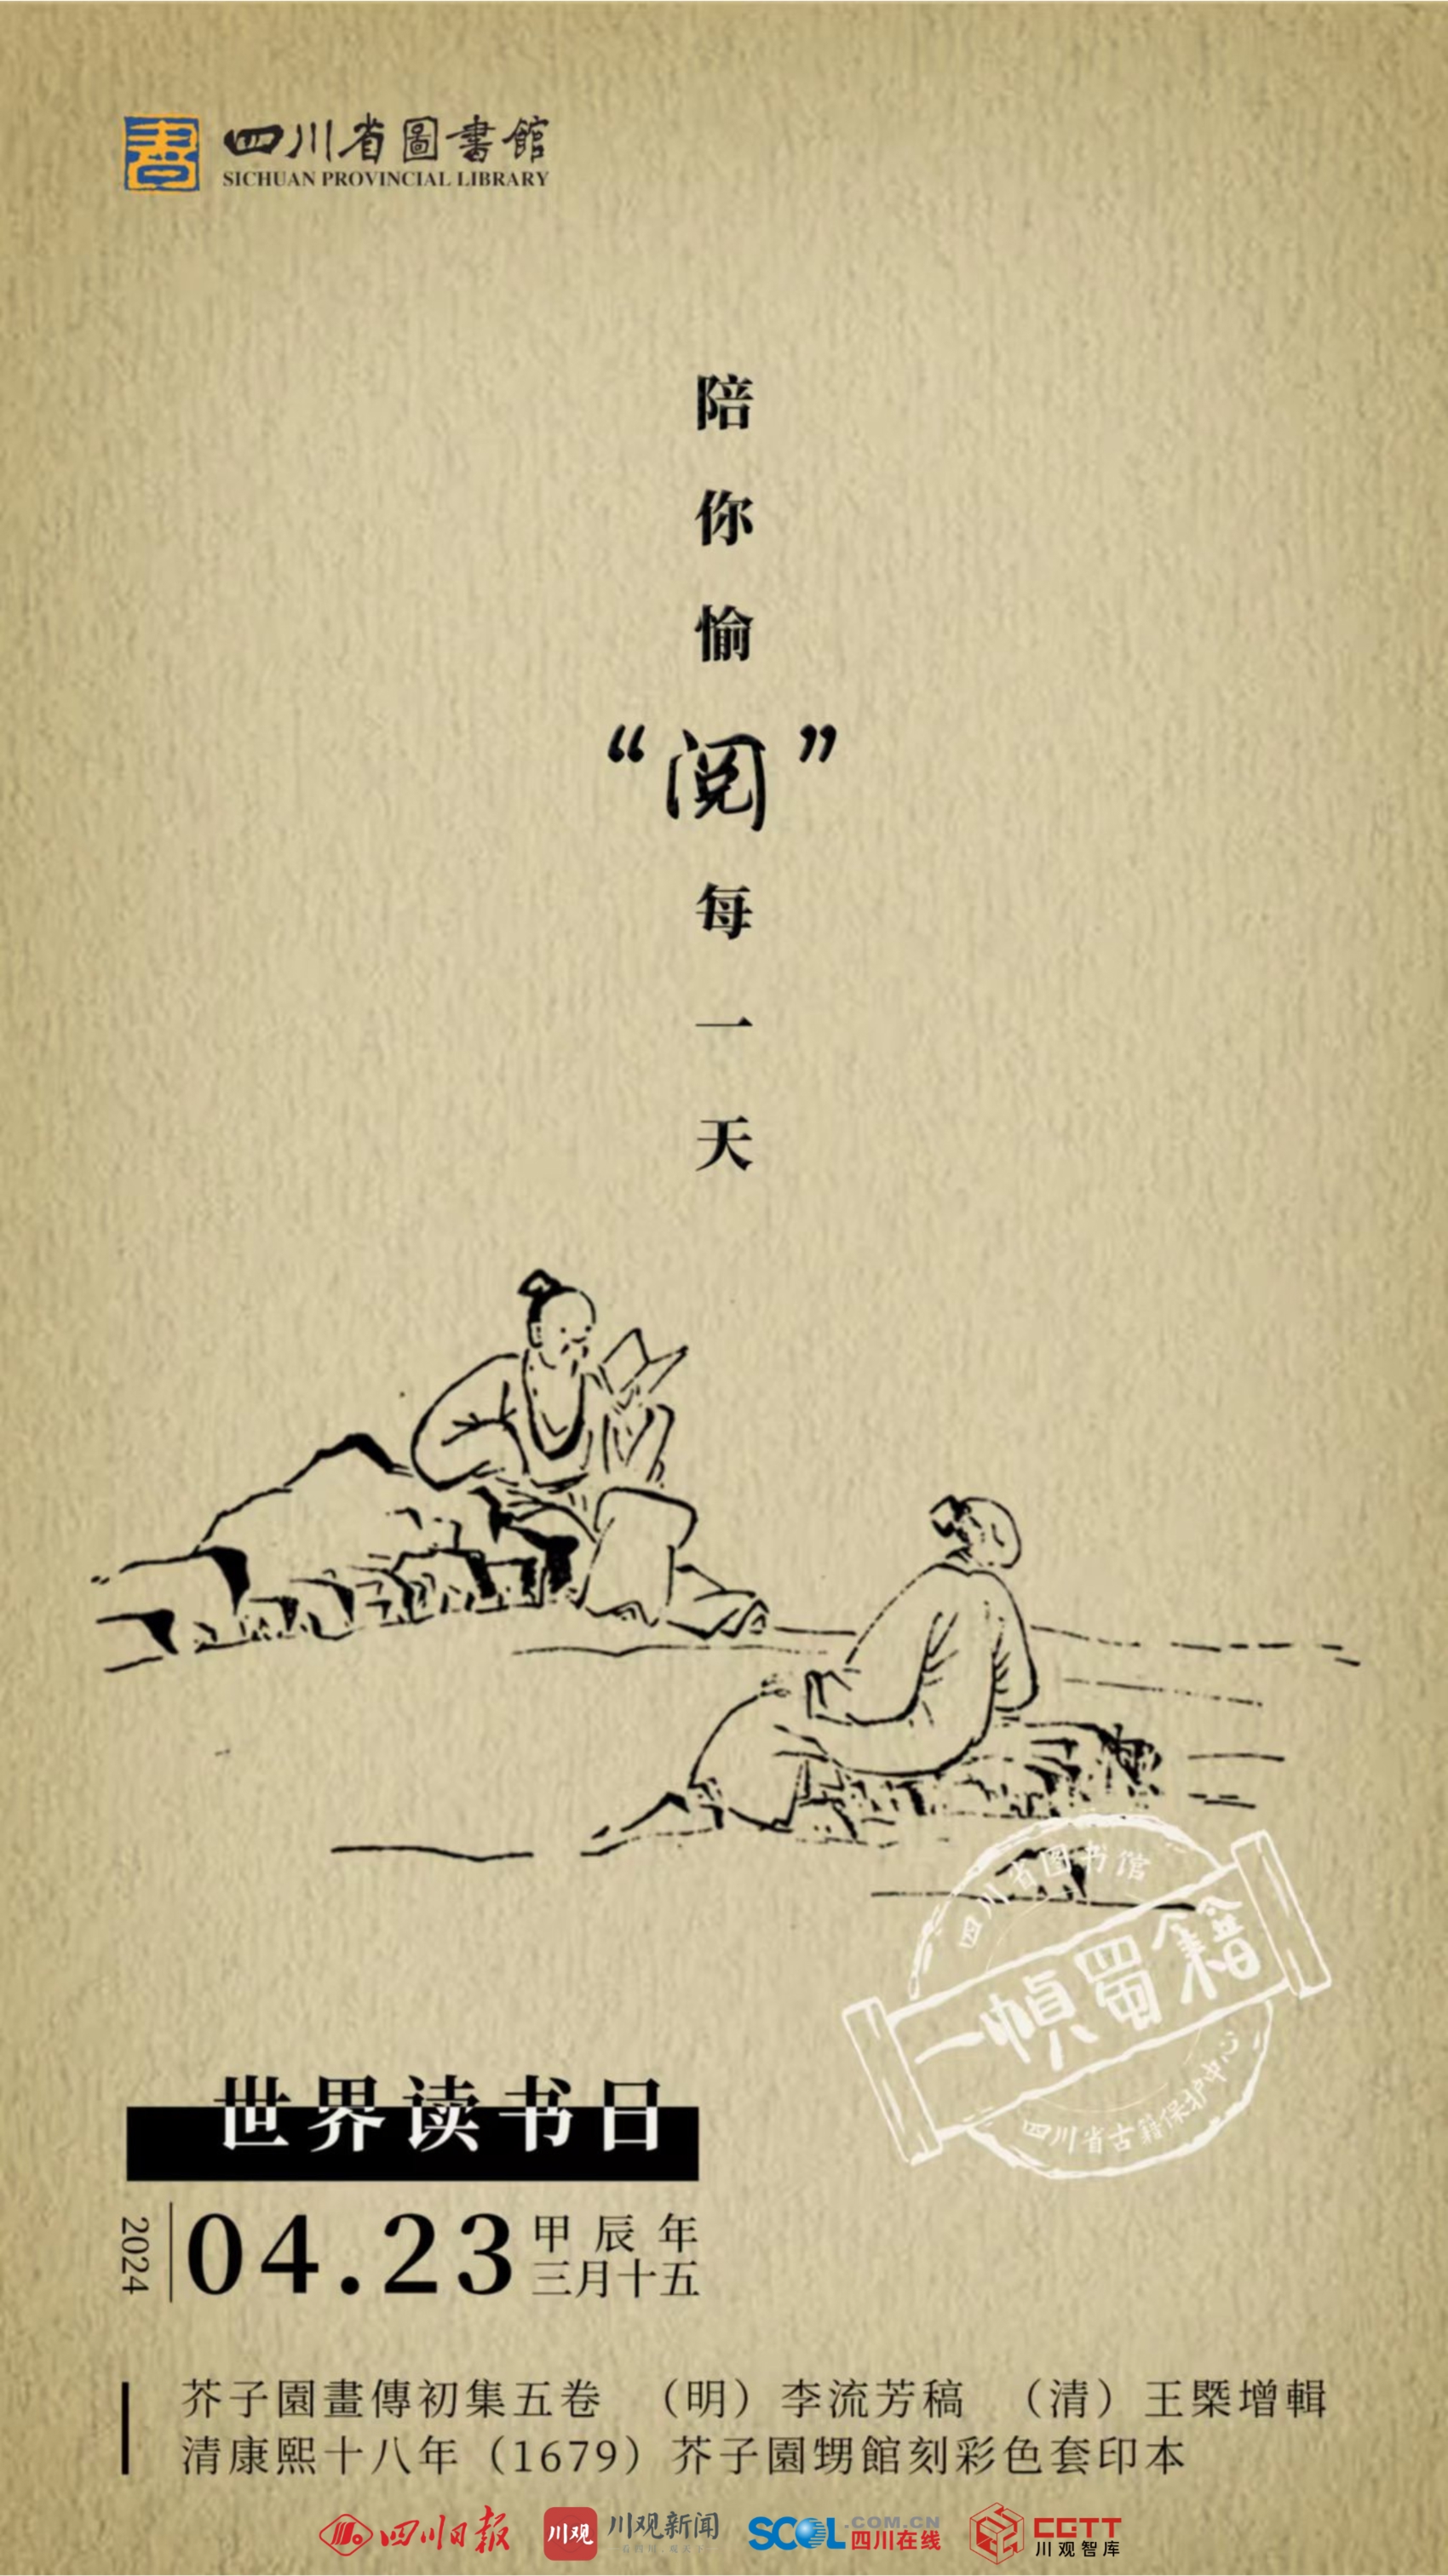 書
四川省圖書館
SICHUAN PROVINCIAL LIBRARY
陪你愉“阅”每一天
四川省图书馆
一幀蜀籍
四川省古籍保护中心
世界读书日
2024
04.23
甲辰年
三月十五
芥子園畫傳初集五卷 （明）李流芳稿 （清）王槩增輯
清康熙十八年（1679）芥子園甥館刻彩色套印本
四川日报
川观
川观新闻
SCOL.COM.CN
四川在线
CGTT
川观智库